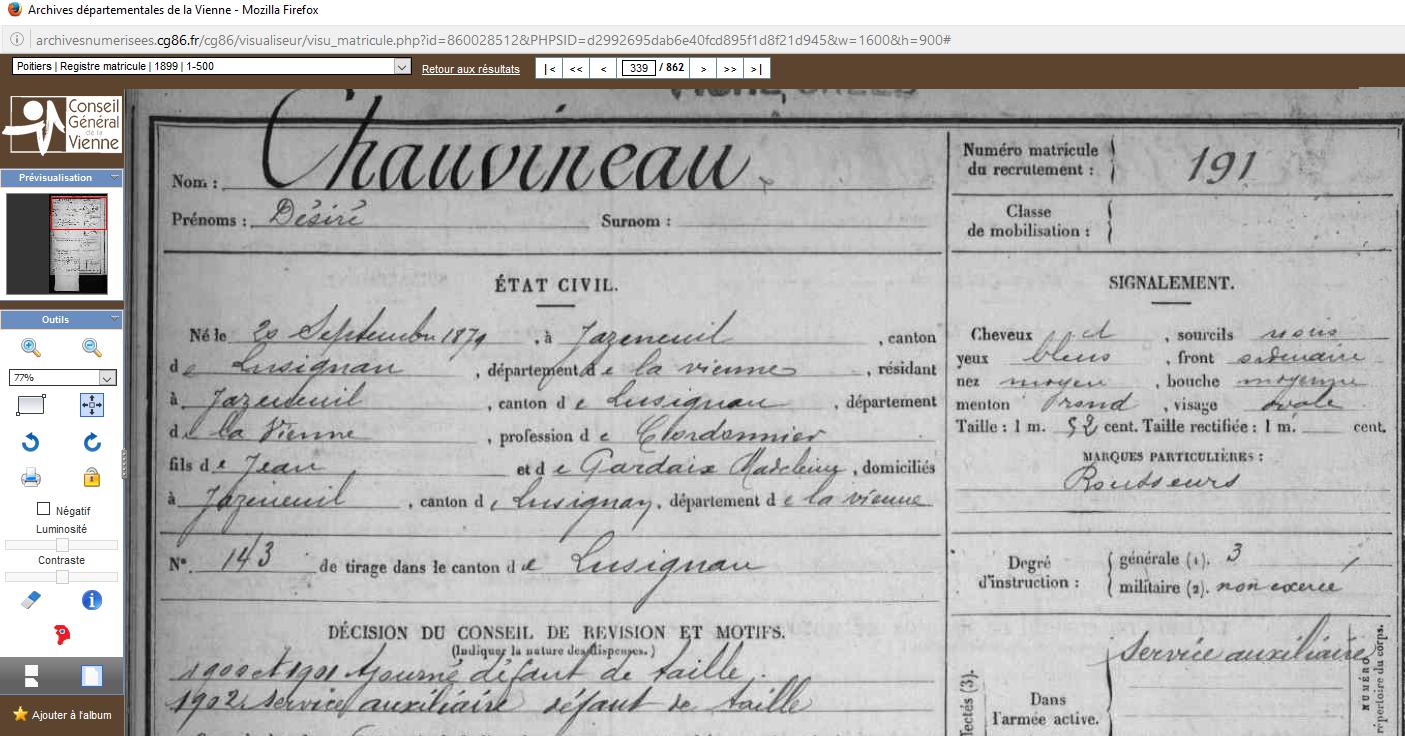 Archives départementales de la Vienne - Mozilla Firefox
archivesnumerisees.cg86.fr/cg86/visualiseur/visu_matricule.php?id=860028512&PHPSID=d2992695dab6e40fcd895f1d8f21d945&w=1600&h=900#
Poitiers | Registre matricule | 1899 | 1-500
Retour aux résultats
|< << < 339 / 862 > >> >|
Conseil
Général
de la
Vienne
Prévisualisation
Outils
77%
Négatif
Luminosité
Contraste
Ajouter à l'album
Nom : Chauvineau
Prénoms : Désiré Surnom :
Numéro matricule
du recrutement : 191
Classe
de mobilisation :
ÉTAT CIVIL.
Né le 20 Septembre 1879, à Jazeneuil, canton
de Lusignan, département de la vienne, résidant
à Jazeneuil, canton de Lusignan, département
de la Vienne, profession de Cordonnier
fils de Jean et de Gardaix Madeleine, domiciliés
à Jazeneuil, canton de Lusignan, département de la vienne
N° 143 de tirage dans le canton de Lusignan
DÉCISION DU CONSEIL DE REVISION ET MOTIFS.
(Indiquer la nature des dispenses.)
1900 et 1901 Ajourné défaut de taille.
1902 service auxiliaire défaut de taille
SIGNALEMENT.
Cheveux et, sourcils noirs
yeux bleus, front ordinaire
nez moyen, bouche moyenne
menton rond, visage ovale
Taille : 1 m. 52 cent. Taille rectifiée : 1 m. cent.
MARQUES PARTICULIÈRES :
Rousseurs
Degré
d'instruction :
générale (1). 3
militaire (2). non exercé
Dans
l'armée active.
Service auxiliaire
NUMÉRO
répertoire du corps.